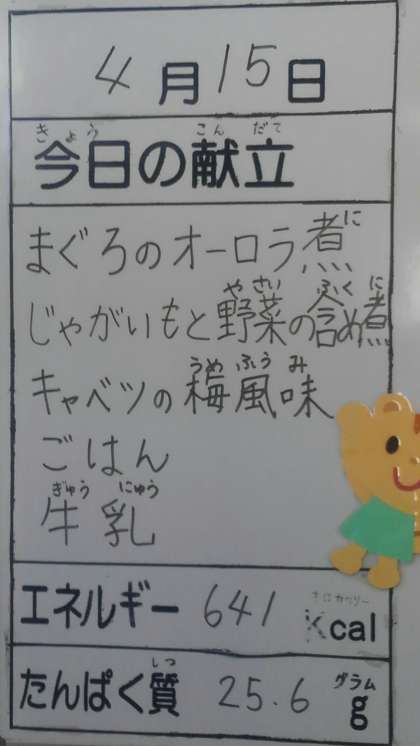 4月15日
きょう こん だて
今日の献立
に
まぐろのオーロラ煮
や さい ふく に
じゃがいもと野菜の含め煮
うめ ふう み
キャベツの梅風味
ごはん
ぎゅう にゅう
牛乳
キロカロリー
エネルギー 641 Kcal
しつ グラム
たんぱく質 25.6 g